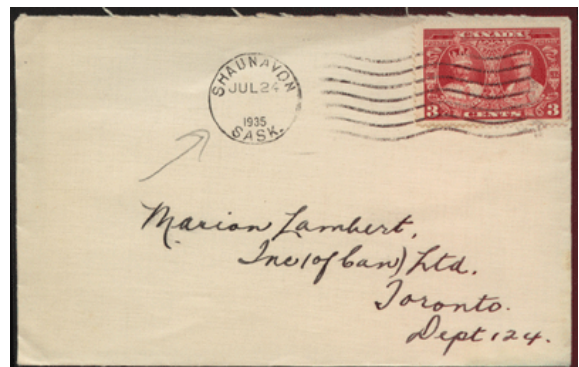 SHAUNAVON
JUL 24
1935
SASK.
CANADA
3 CENTS 3
Marion Lambert,
Inc (of Can) Ltd.
Toronto.
Dept 124.